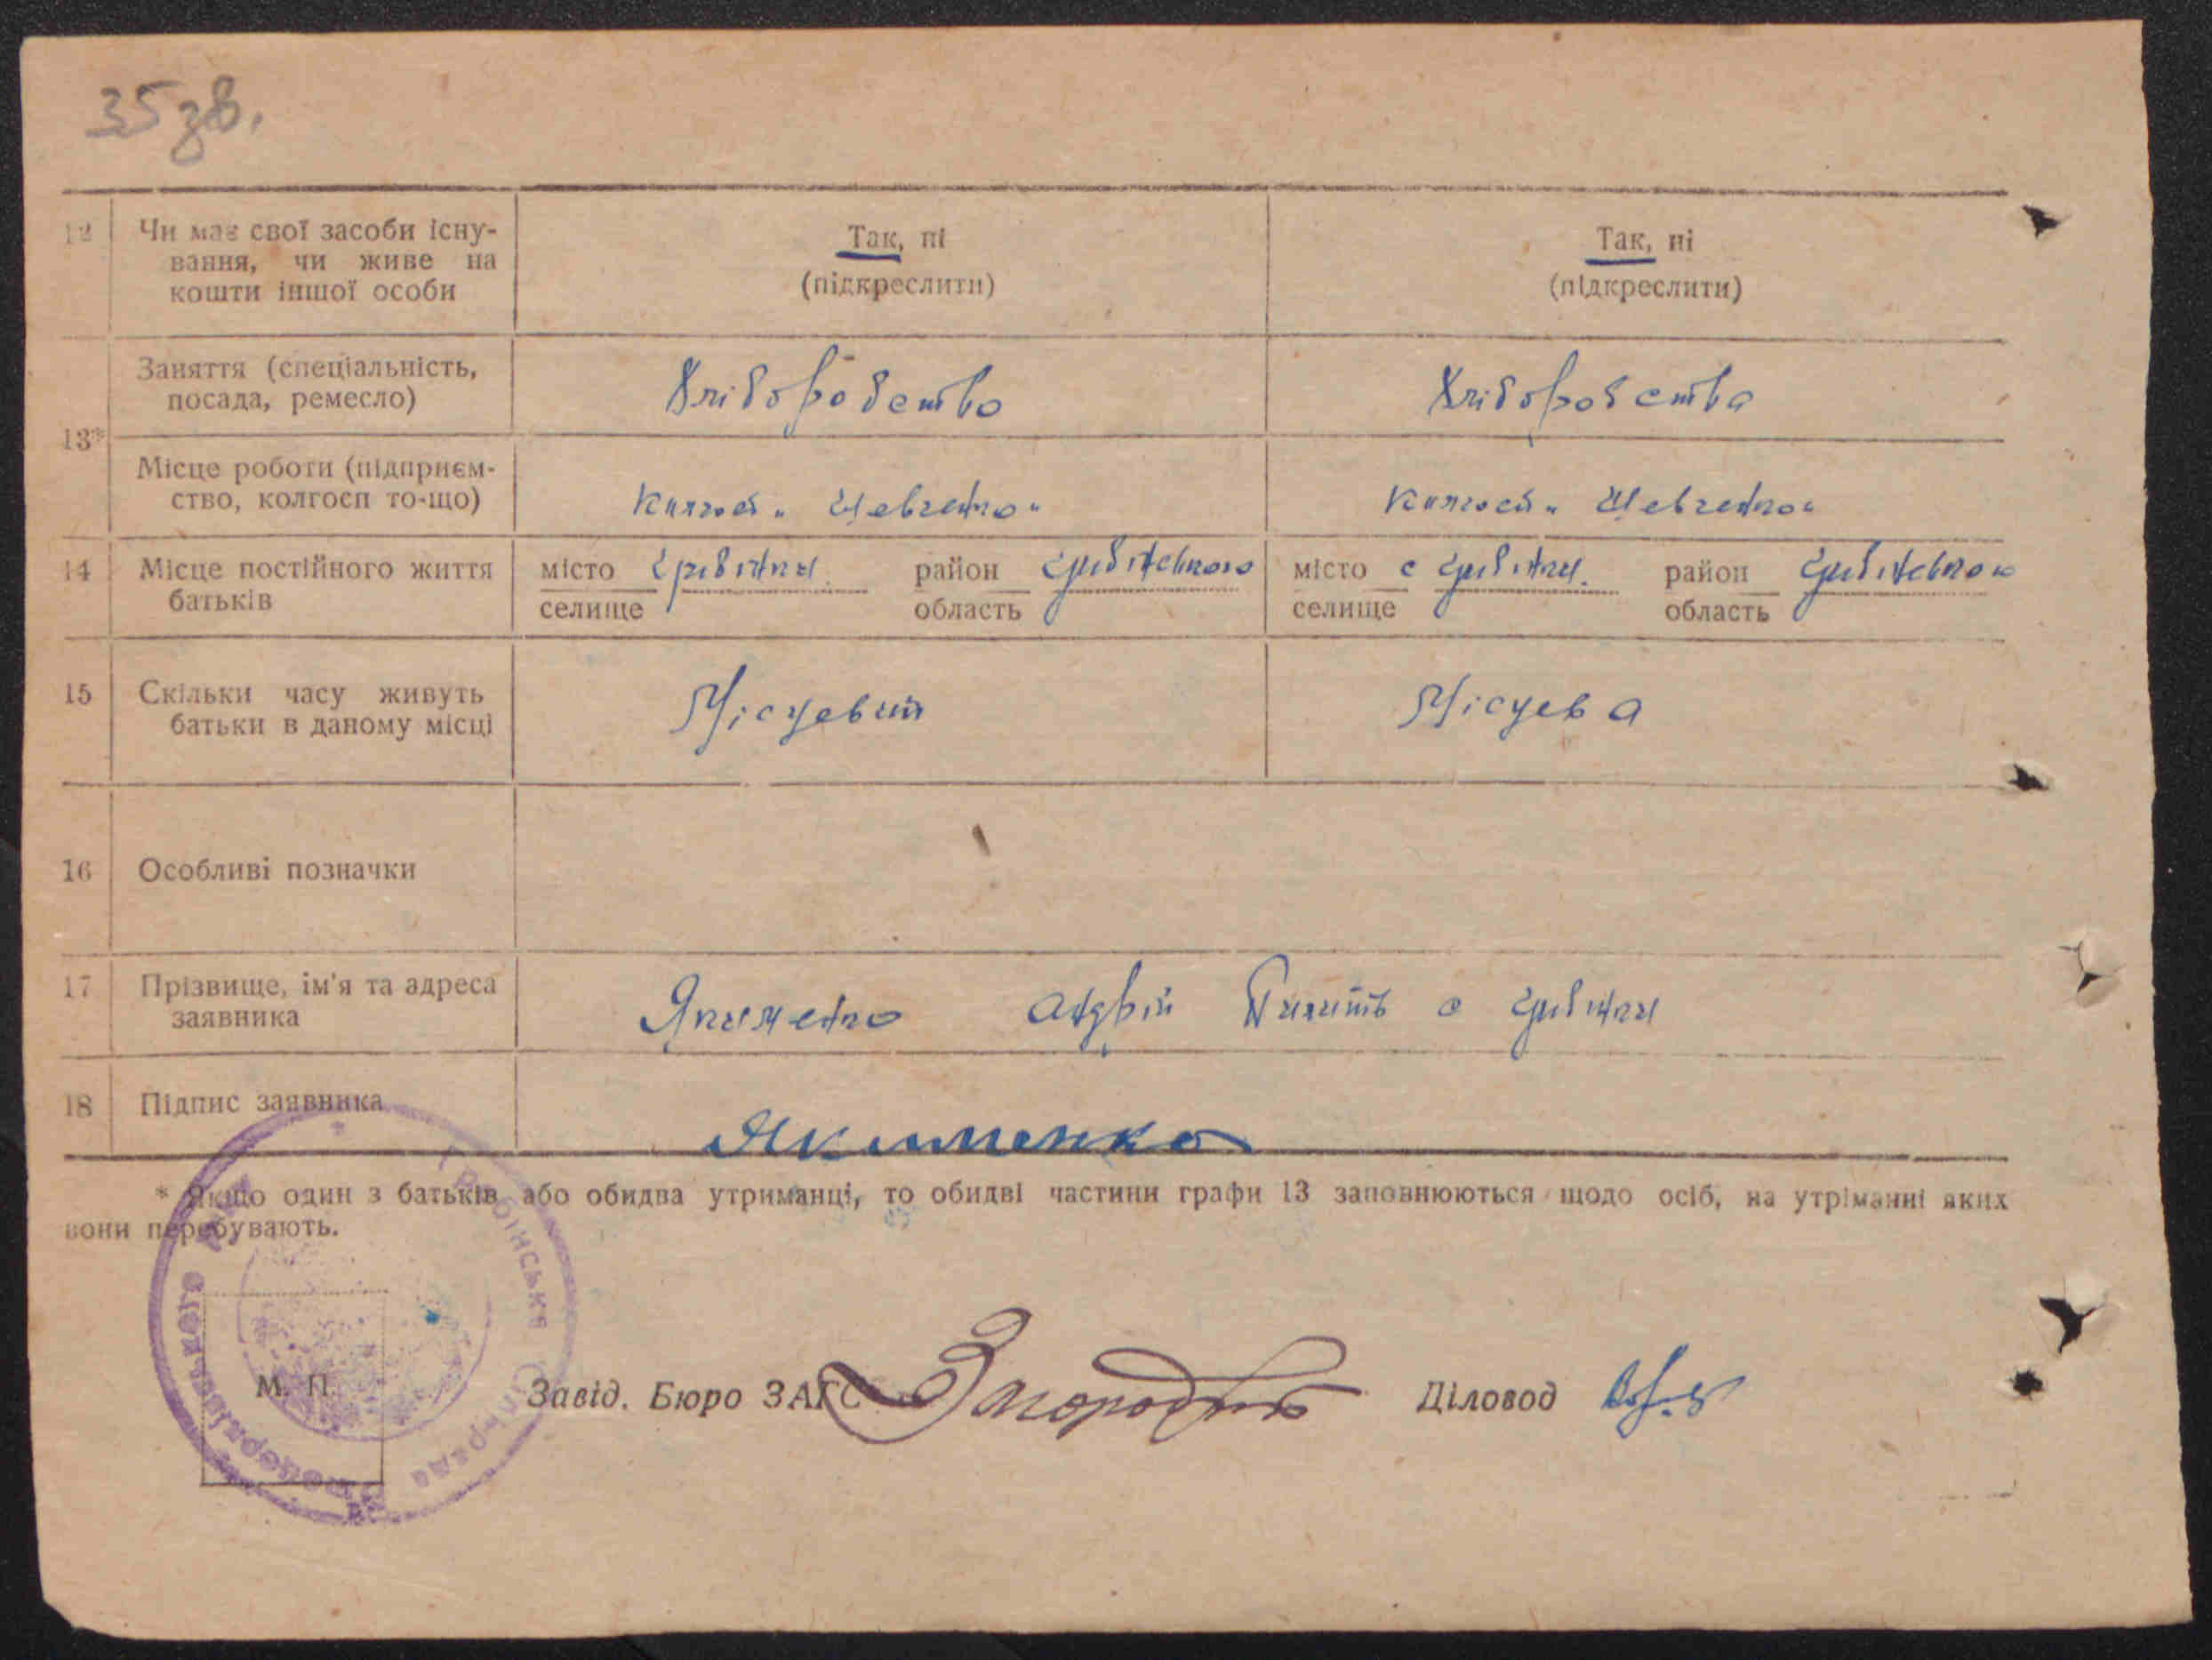 35 зв.
12 Чи має свої засоби існу-
вання, чи живе на
кошти іншої особи
Так, ні
(підкреслити)
Так, ні
(підкреслити)
13*
Заняття (спеціальність,
посада, ремесло)
Хліборобство
Хліборобства
Місце роботи (підприєм-
ство, колгосп то-що)
Колгосп „Шевченко"
Колгосп „Шевченко"
14 Місце постійного життя
батьків
місто
селище
район
область
місто с
селище
район
область
15 Скільки часу живуть
батьки в даному місці
Місцевий
Місцева
16 Особливі позначки
17 Прізвище, ім'я та адреса
заявника
Якименко Андрій с
18 Підпис заявника
Якименко
* Якщо один з батьків або обидва утриманці, то обидві частини графи 13 заповнюються щодо осіб, на утріманні яких
вони перебувають.
М. П.
Завід. Бюро ЗАГС
Діловод
Сільрада